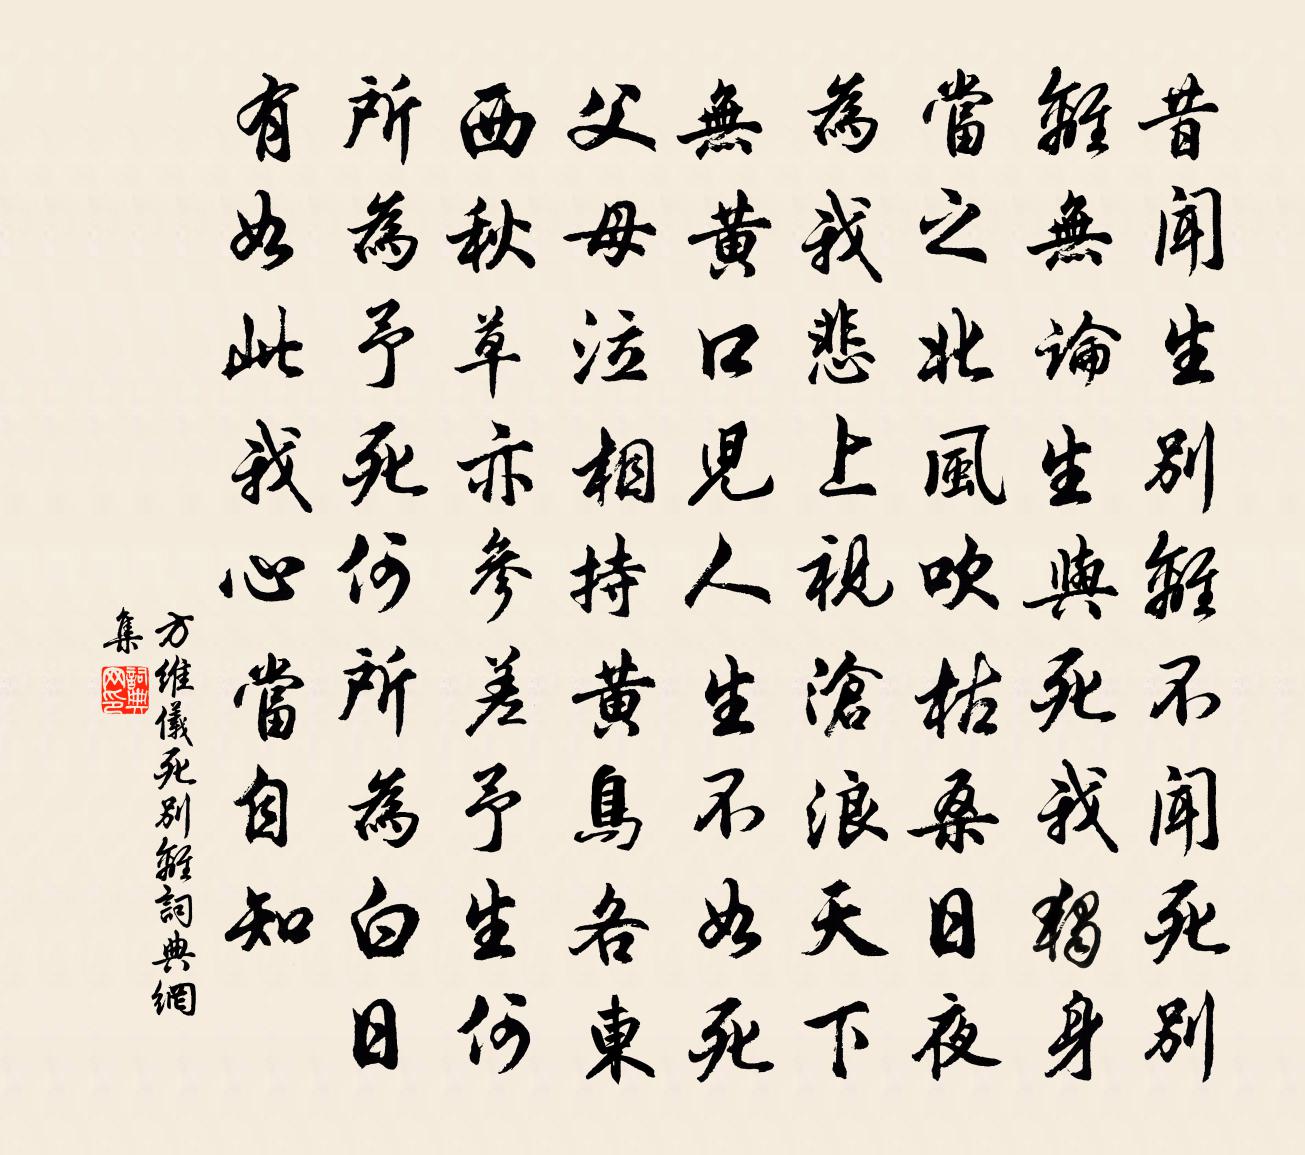 昔聞生別離不聞死別
離無論生與死我獨身
當之北風吹枯桑日夜
為我悲上視滄浪天下
無黃口兒人生不如死
父母泣相持黃鳥各東
西秋草亦參差予生何
所為予死何所為白日
有如此我心當自知
方維儀死別離詞典網
集
詞典
网印